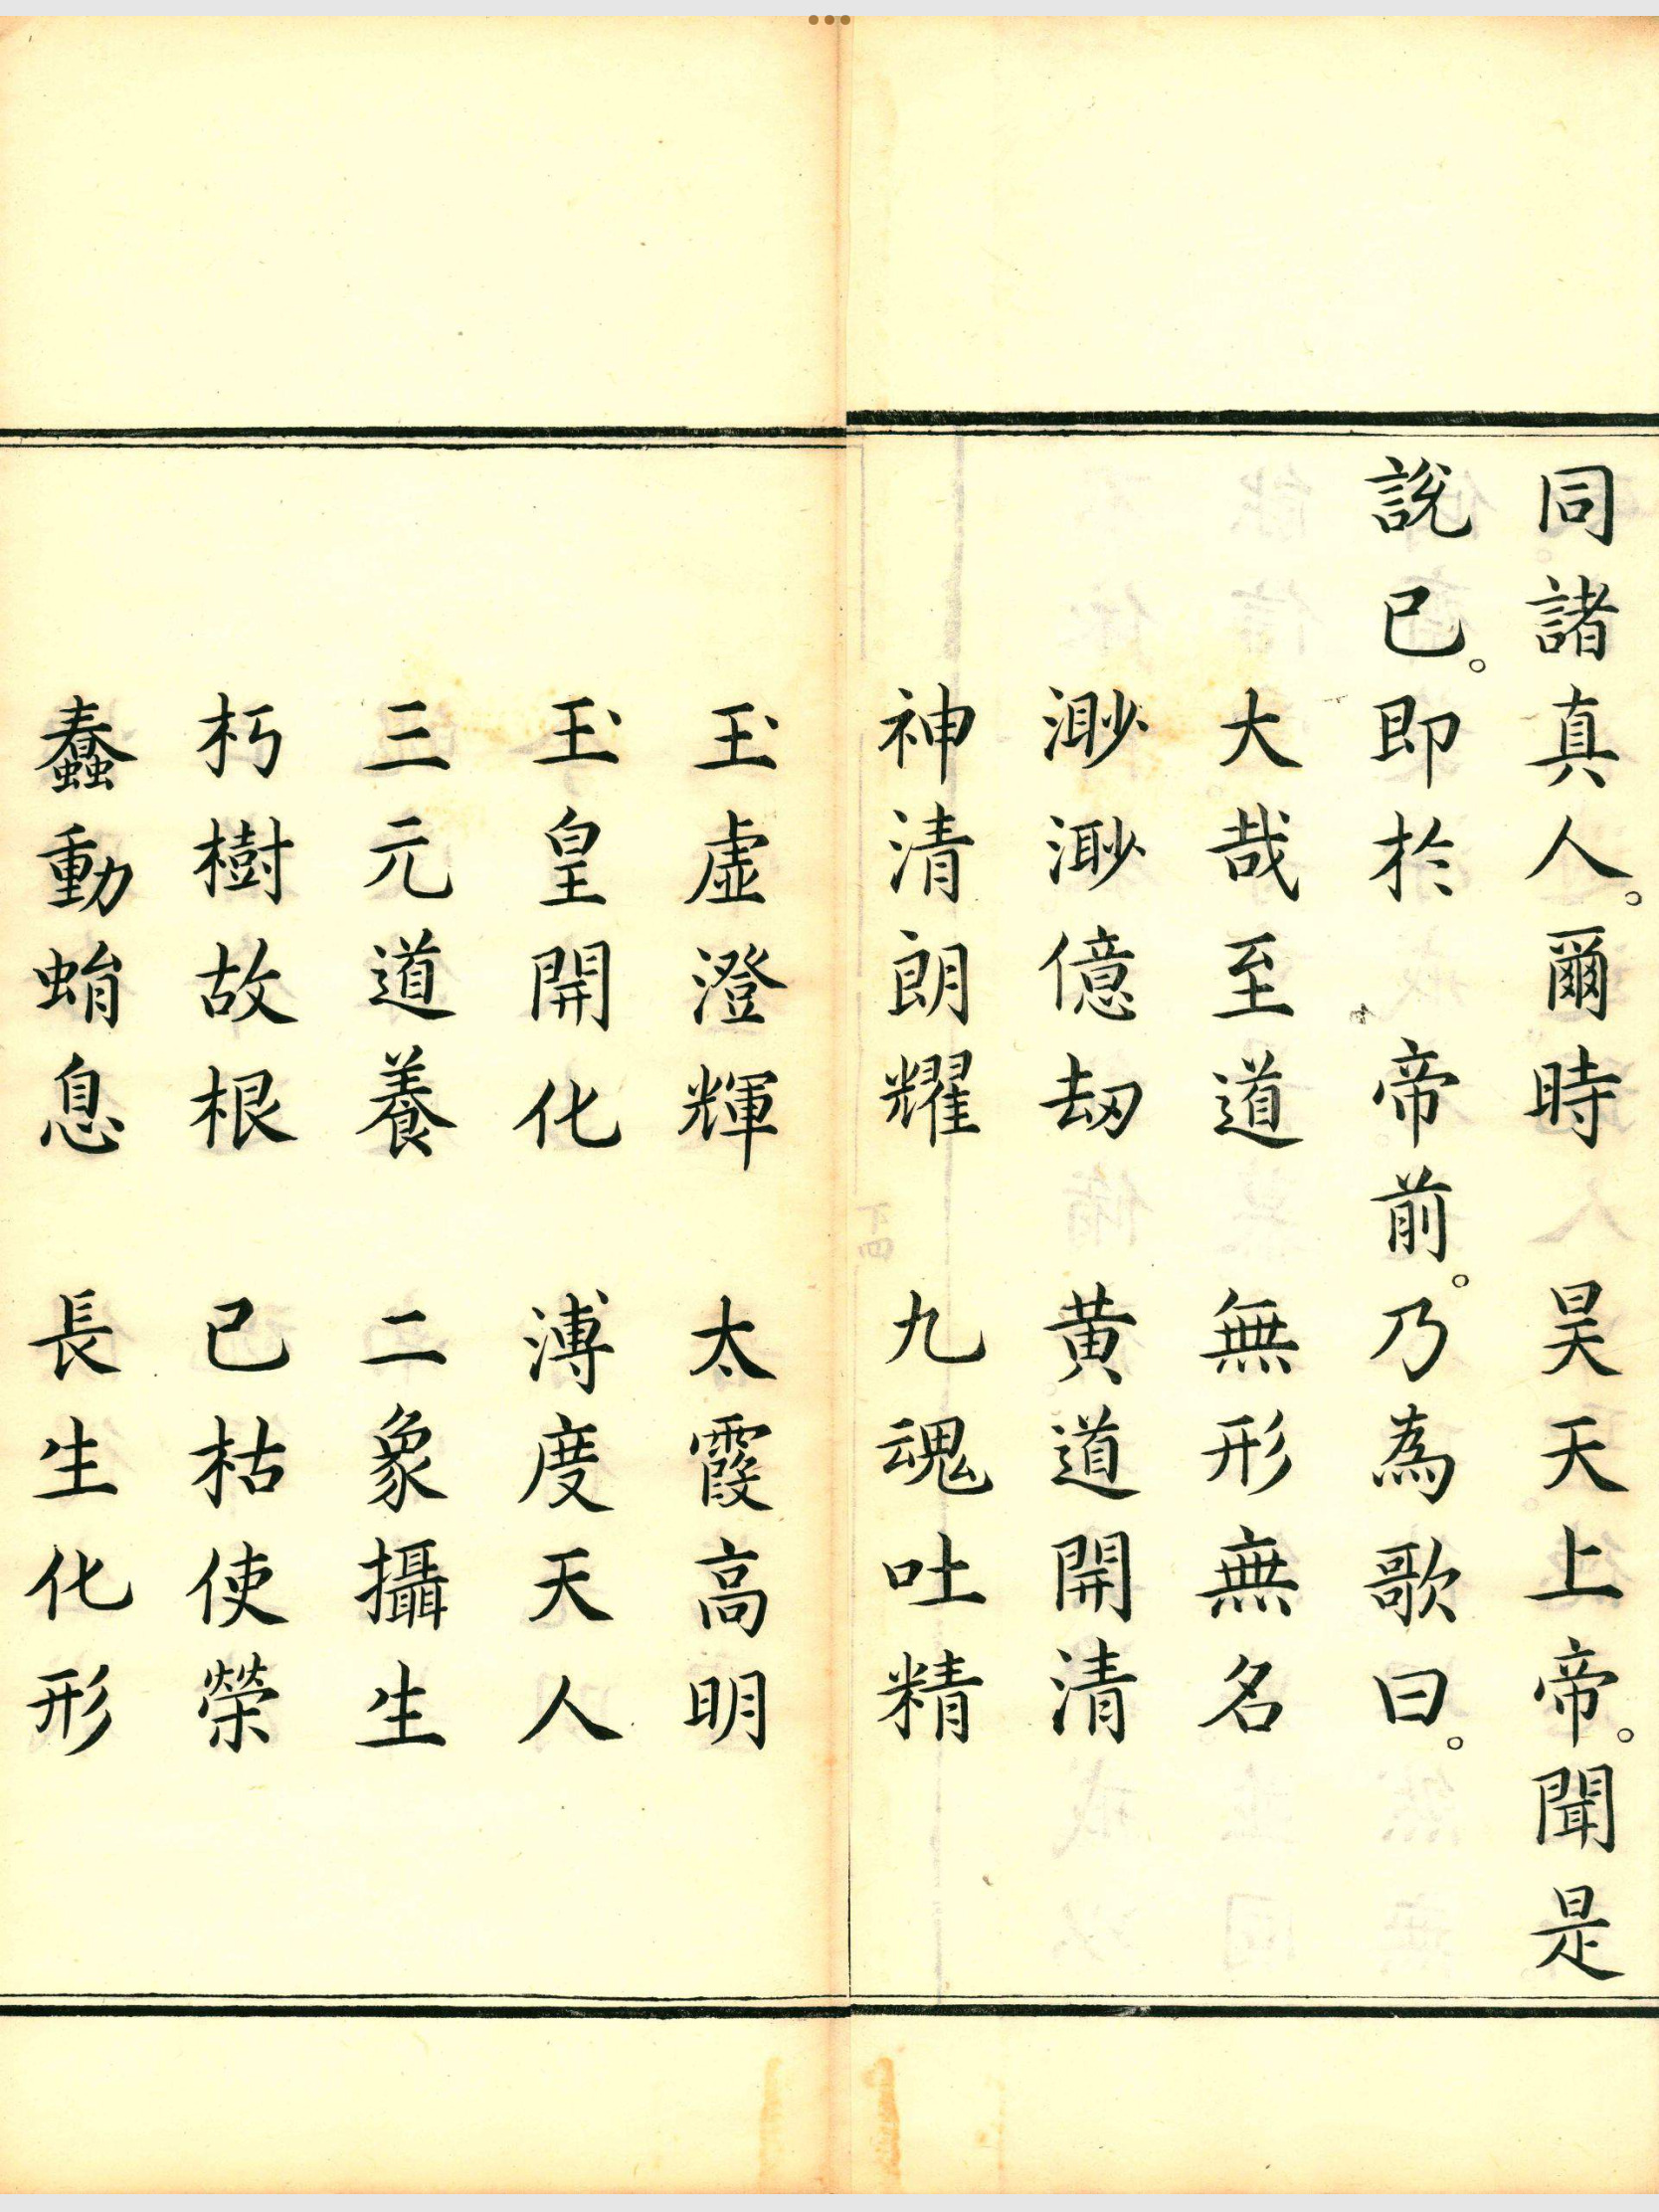 同諸真人。爾時　昊天上帝。聞是
說已。即於　帝前。乃為歌曰。
大哉至道　無形無名
渺渺億劫　黃道開清
神清朗耀　九魂吐精
玉虛澄輝　太霞高明
玉皇開化　溥度天人
三元道養　二象攝生
朽樹故根　已枯使榮
蠢動蜎息　長生化形